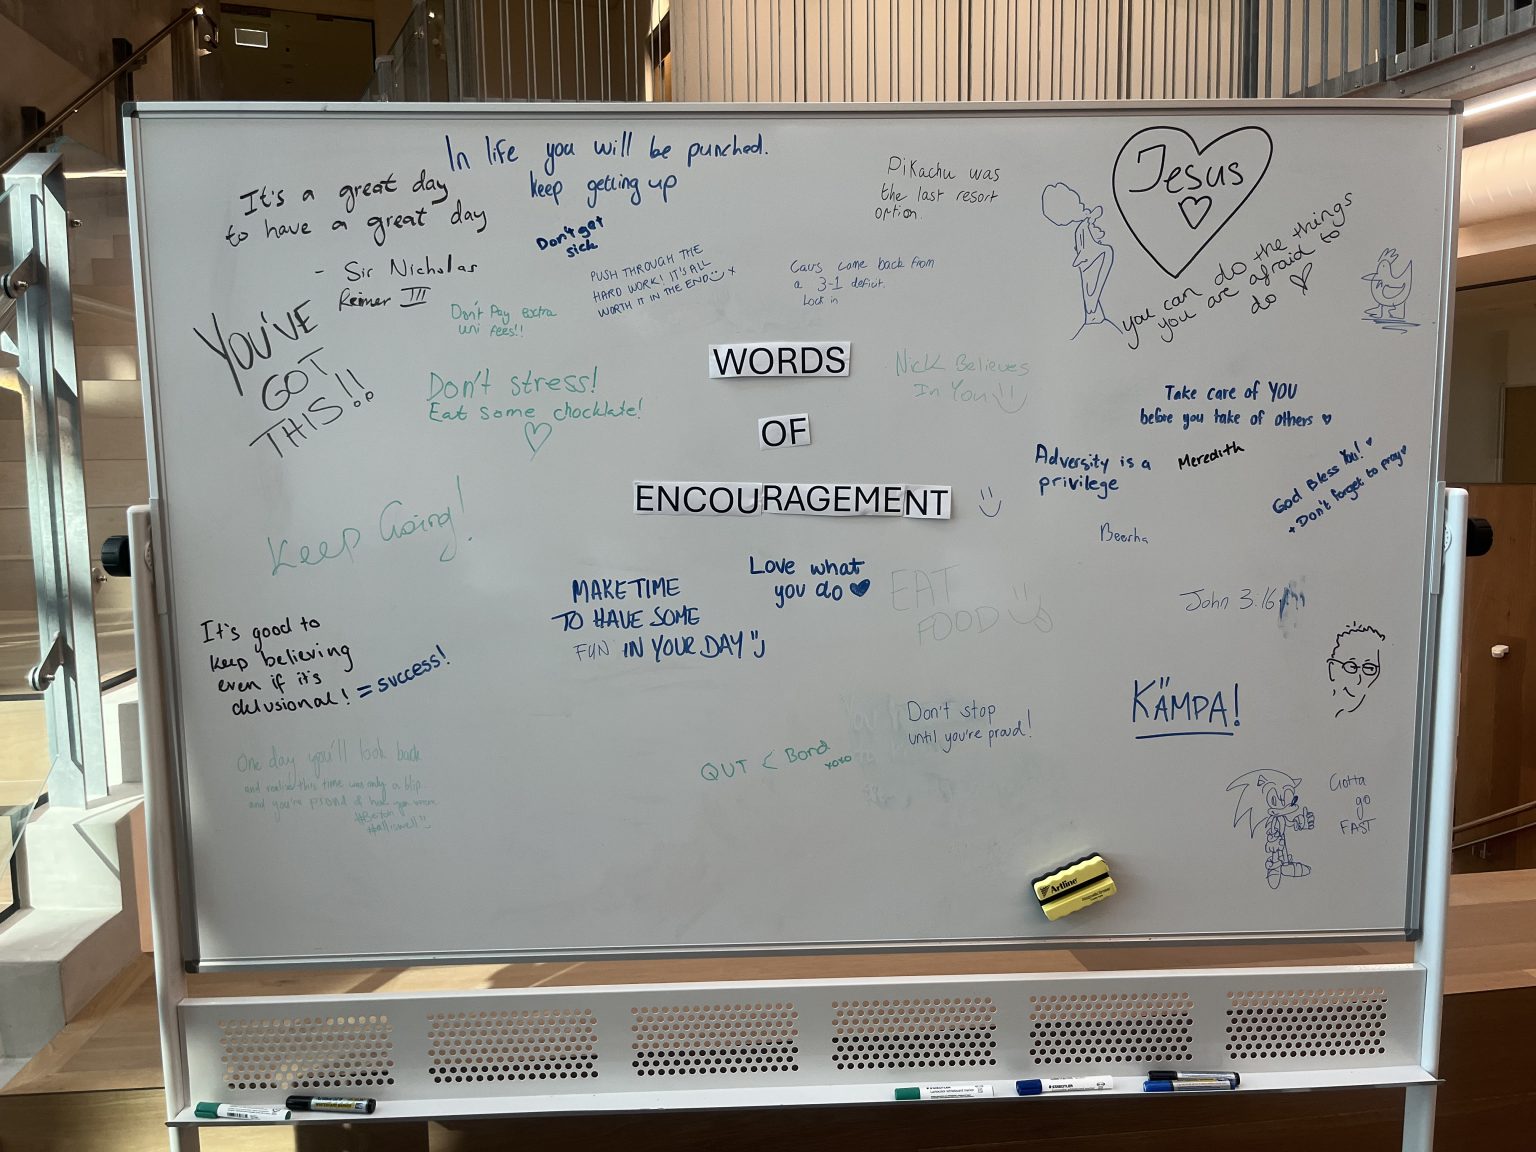 In life you will be punched.
keep getting up
It's a great day
to have a great day
- Sir Nicholas
Reimer III
Don't get
sick
PUSH THROUGH THE
HARD WORK! IT'S ALL
WORTH IT IN THE END x
Pikachu was
the last resort
option.
Cavs come back from
a 3-1 deficit.
Lock in
Jesus
you can do the things
you are afraid to
do
YOU'VE
GOT
THIS!!
Don't Pay extra
uni fees!!
Don't stress!
Eat some chocklate!
WORDS
OF
ENCOURAGEMENT
Nick Believes
In You
Take care of YOU
before you take of others
Adversity is a
privilege
Meredith
God Bless You!
+ Don't forget to pray
Beerha
Keep Going!
MAKE TIME
TO HAVE SOME
FUN IN YOUR DAY
Love what
you do
EAT
FOOD
John 3:16
It's good to
keep believing
even if it's
delusional! = success!
KÄMPA!
Don't stop
until you're proud!
QUT < Bond
xoxo
One day you'll look back
and realise this time was only a blip
and you're proud of how you
#alliswell
Gotta
go
FAST
Artline